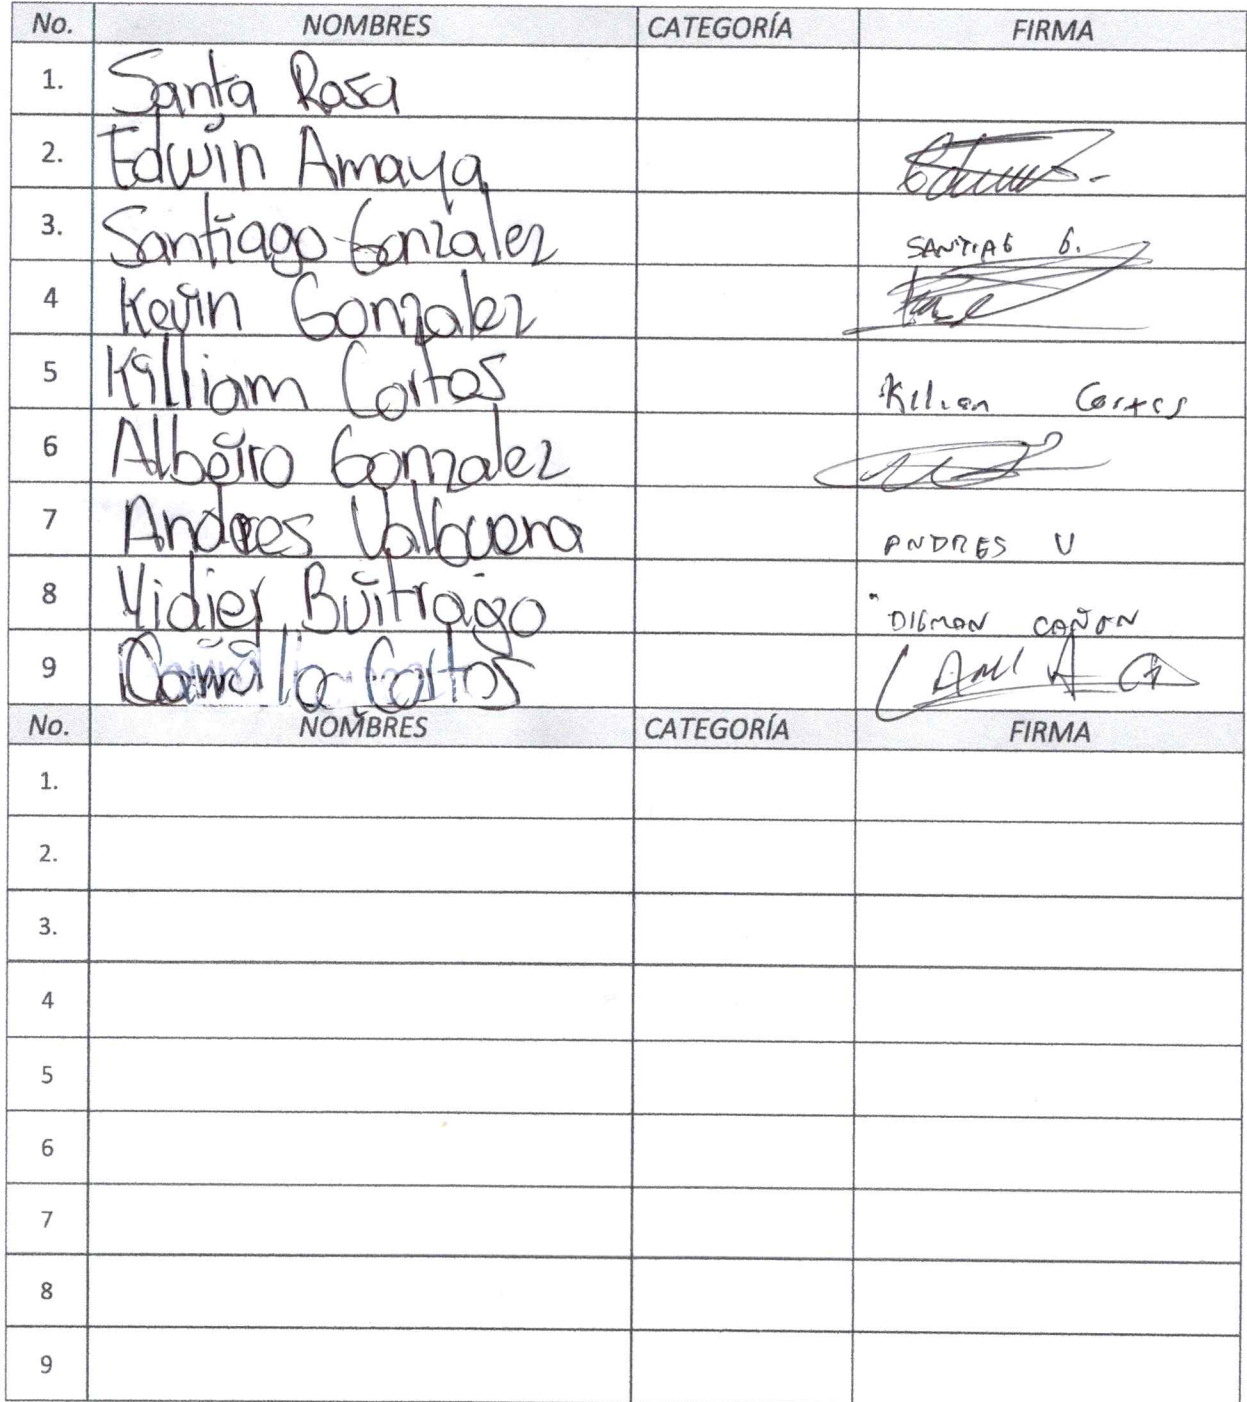 No. NOMBRES CATEGORÍA FIRMA
1. Santa Rosa
2. Edwin Amaya
3. Santiago Gonzalez SANTIAG G.
4 Kevin Gonzalez
5 Killiam Cortes Kilian Cortes
6 Albeiro Gonzalez
7 Andres Valbuena ANDRES V
8 Yidier Buitrago DIGMAN CAÑON
9 Camila Cortes
No. NOMBRES CATEGORÍA FIRMA
1.
2.
3.
4
5
6
7
8
9